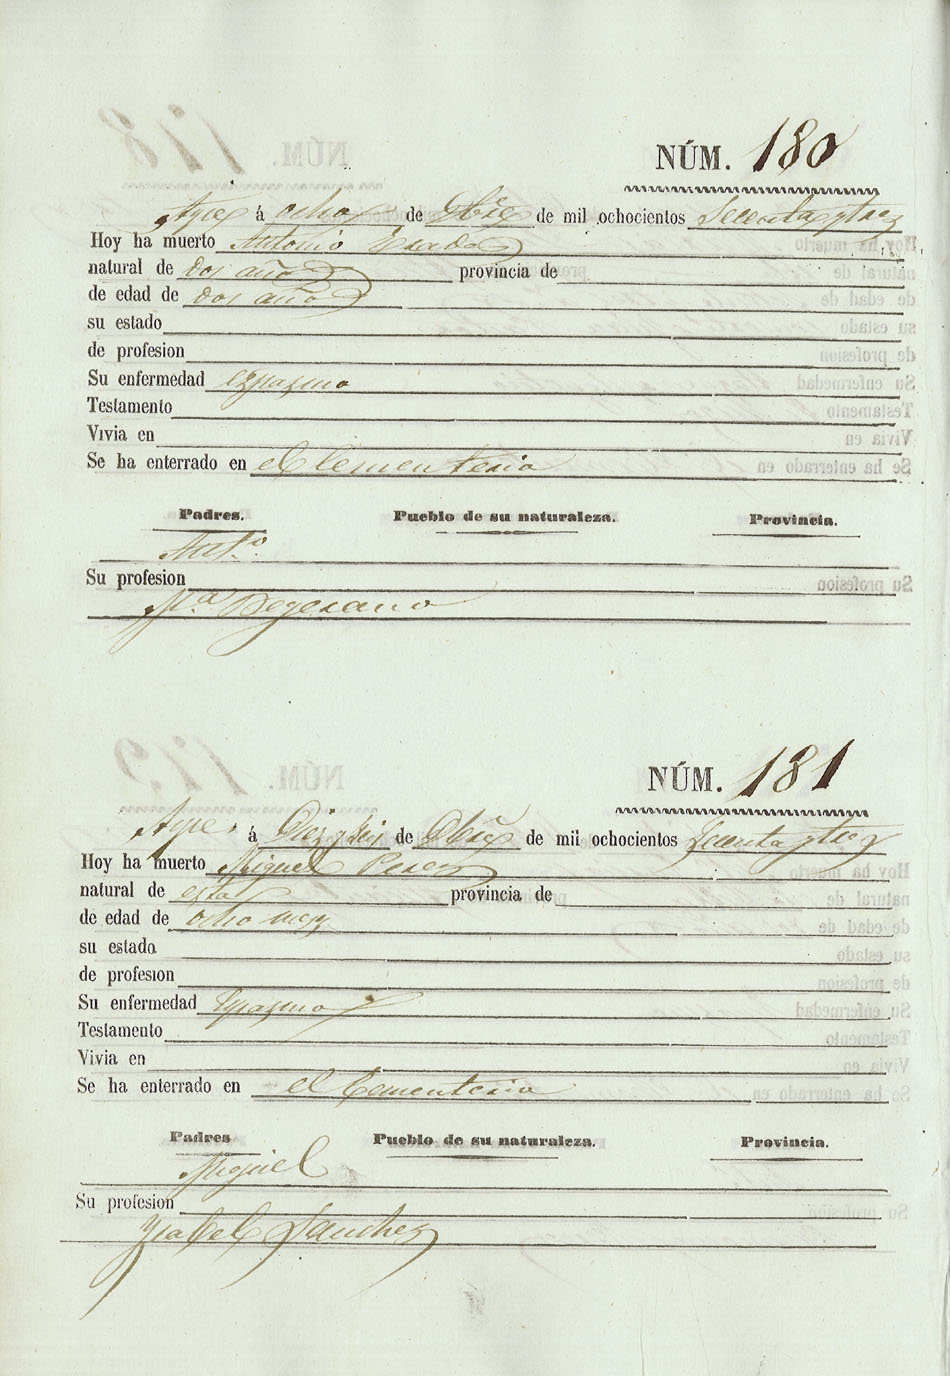 NÚM. 180
Ayer á ocho de Dbre de mil ochocientos secenta y trez
Hoy ha muerto Antonio
natural de dos año provincia de
de edad de dos año
su estado
de profesion
Su enfermedad espazmo
Testamento
Vivia en
Se ha enterrado en el Cementerio
Padres. Pueblo de su naturaleza. Provincia.
Anto.
Su profesion
Ma.
NÚM. 181
Ayer á Diez y seis de Dbre de mil ochocientos secenta y trez
Hoy ha muerto Miguel Perez
natural de esta provincia de
de edad de ocho mez
su estado
de profesion
Su enfermedad Espazmo
Testamento
Vivia en
Se ha enterrado en el Cementerio
Padres Pueblo de su naturaleza. Provincia.
Miguel
Su profesion
Ysabel Sanchez